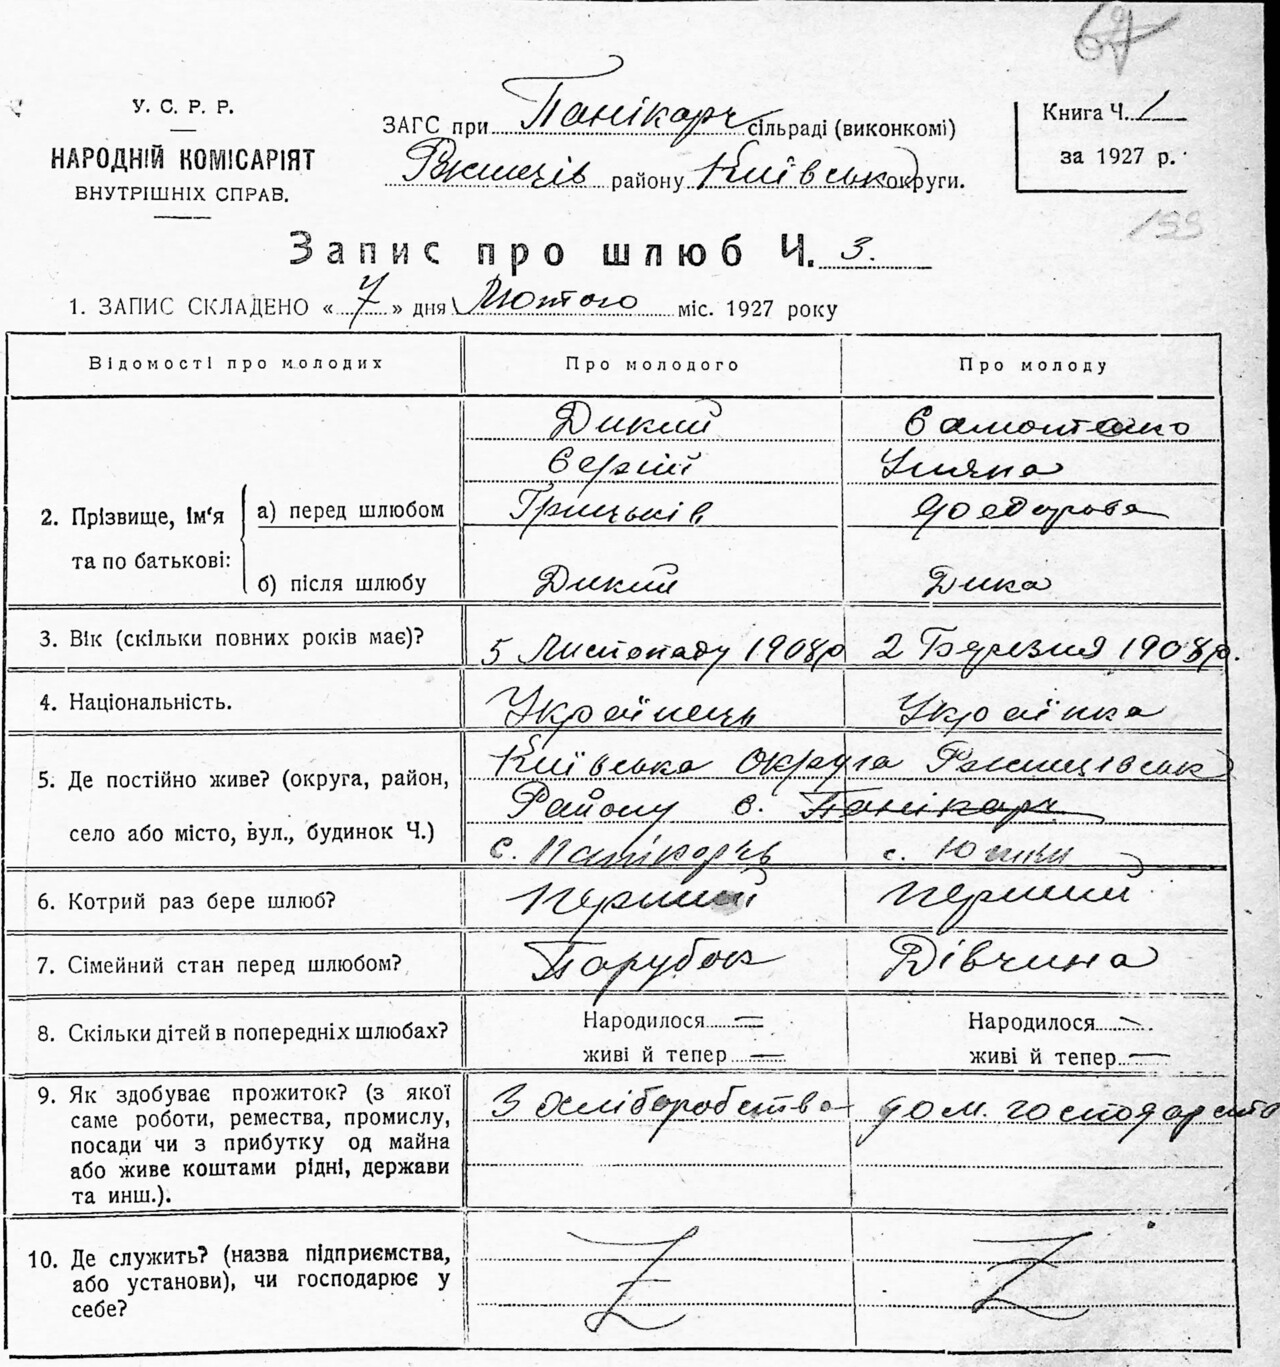 67
У. С. Р. Р.
НАРОДНІЙ КОМІСАРІЯТ
ВНУТРІШНІХ СПРАВ.
ЗАГС при Панікарч сільраді (виконкомі)
Ржищів району Київськ округи.
Книга Ч. 1
за 1927 р.
199
Запис про шлюб Ч. 3.
1. ЗАПИС СКЛАДЕНО « 7 » дня Лютого міс. 1927 року
Відомості про молодих Про молодого Про молоду
2. Прізвище, ім'я та по батькові:
а) перед шлюбом
Дикий
Сергій
Грицьків
Уляна
Федорова
б) після шлюбу Дикий Дика
3. Вік (скільки повних років має)? 5 Листопаду 1908р 2 Березня 1908р.
4. Національність. Українець Українка
5. Де постійно живе? (округа, район, Київська округа Ржищівськ
село або місто, вул., будинок Ч.) Району с. Панікарч
с. Панікарчь с.
6. Котрий раз бере шлюб? перший перший
7. Сімейний стан перед шлюбом? Парубок Дівчина
8. Скільки дітей в попередніх шлюбах? Народилося — Народилося —
живі й тепер — живі й тепер —
9. Як здобуває прожиток? (з якої З хліборобства дом. господарств
саме роботи, ремества, промислу,
посади чи з прибутку од майна
або живе коштами рідні, держави
та инш.).
10. Де служить? (назва підприємства,
або установи), чи господарює у
себе?